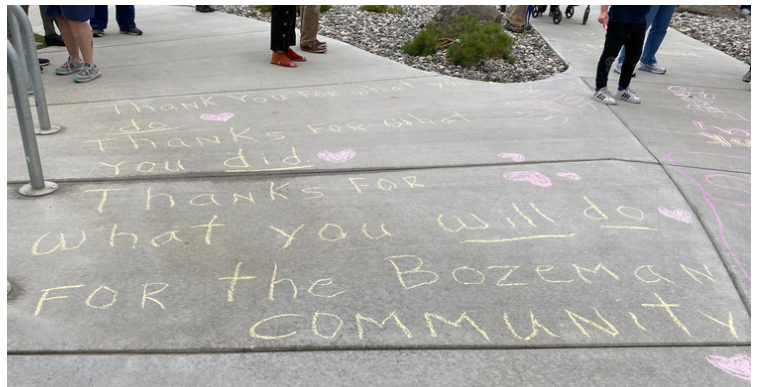 Thank you for what you
do Thanks for what
you did.
Thanks for
what you will do
for the Bozeman
community